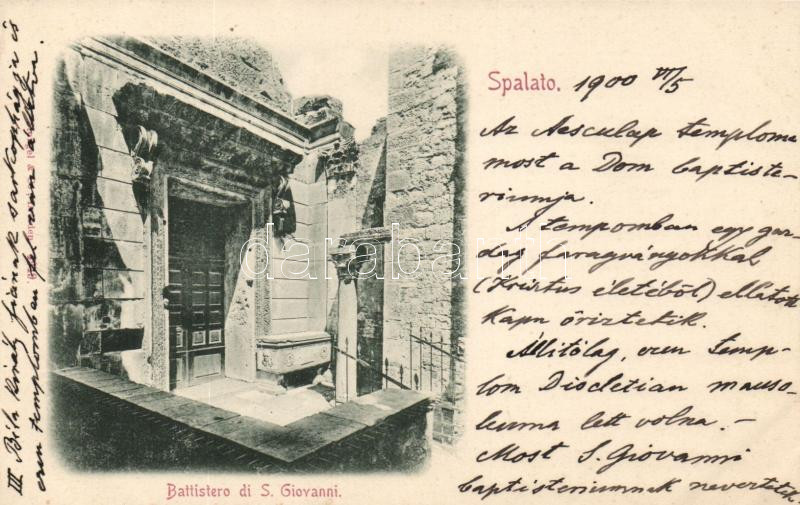 Spalato. 1900 VI/5
Az Aesculap temploma
most a Dom baptiste-
riumja.
A tempomban egy gaz-
dag faragványokkal
(Kristus életéből) ellátott
kapu őriztetik.
Állítólag, ezen temp-
lom Diocletian mauso-
leuma lett volna. -
Most S. Giovanni
baptisteriumnak neveztetik.
Battistero di S. Giovanni.
III Béla király fiának sarkophagja is
ezen templomban van
darabanth